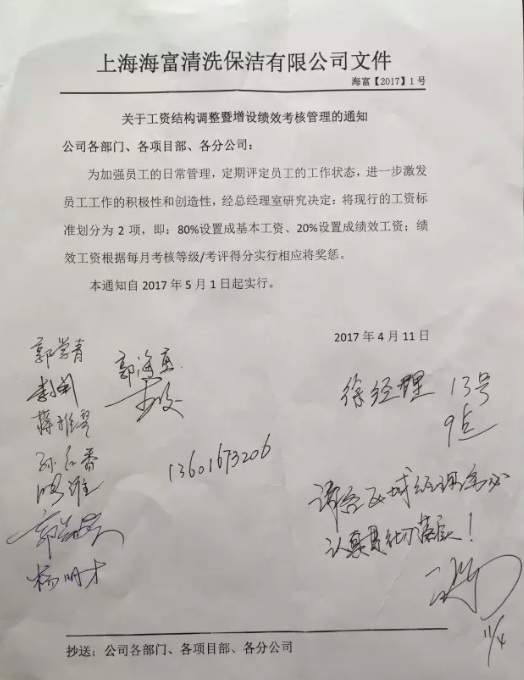 上海海富清洗保洁有限公司文件
海富【2017】1号
关于工资结构调整暨增设绩效考核管理的通知
公司各部门、各项目部、各分公司：
为加强员工的日常管理，定期评定员工的工作状态，进一步激发
员工工作的积极性和创造性，经总经理室研究决定：将现行的工资标
准划分为 2 项，即：80%设置成基本工资、20%设置成绩效工资；绩
效工资根据每月考核等级/考评得分实行相应将奖惩。
本通知自 2017 年 5 月 1 日起实行。
2017 年 4 月 11 日
郭学青
蒋雅琴
孙红香
杨明才
13601673206
徐经理 13号
9点
请各区域经理务必
认真贯彻落实！
11/4
抄送：公司各部门、各项目部、各分公司